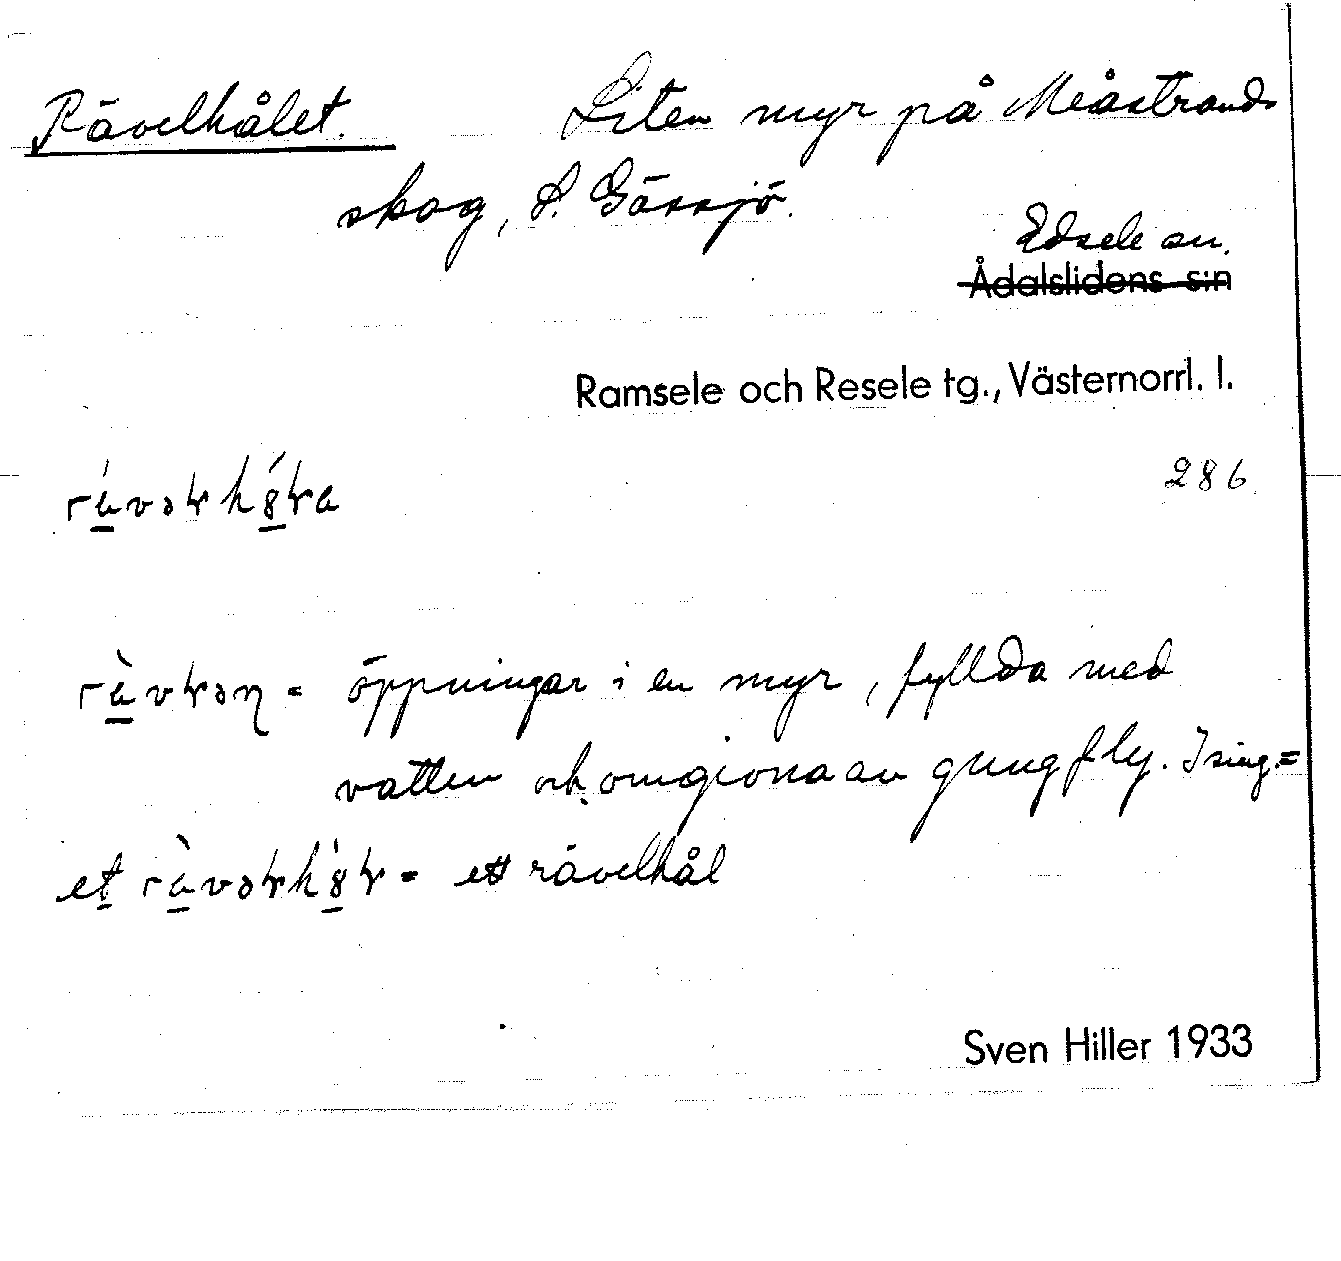 Rävelhålet. Liten myr på Meåstrands
skog, S. Gässjö.
Edsele sn.
Ådalslidens s:n
Ramsele och Resele tg., Västernorrl. l.
286
= öppningar i en myr, fyllda med
vatten och omgivna av gungfly. I sing.=
et = ett rävelhål
Sven Hiller 1933